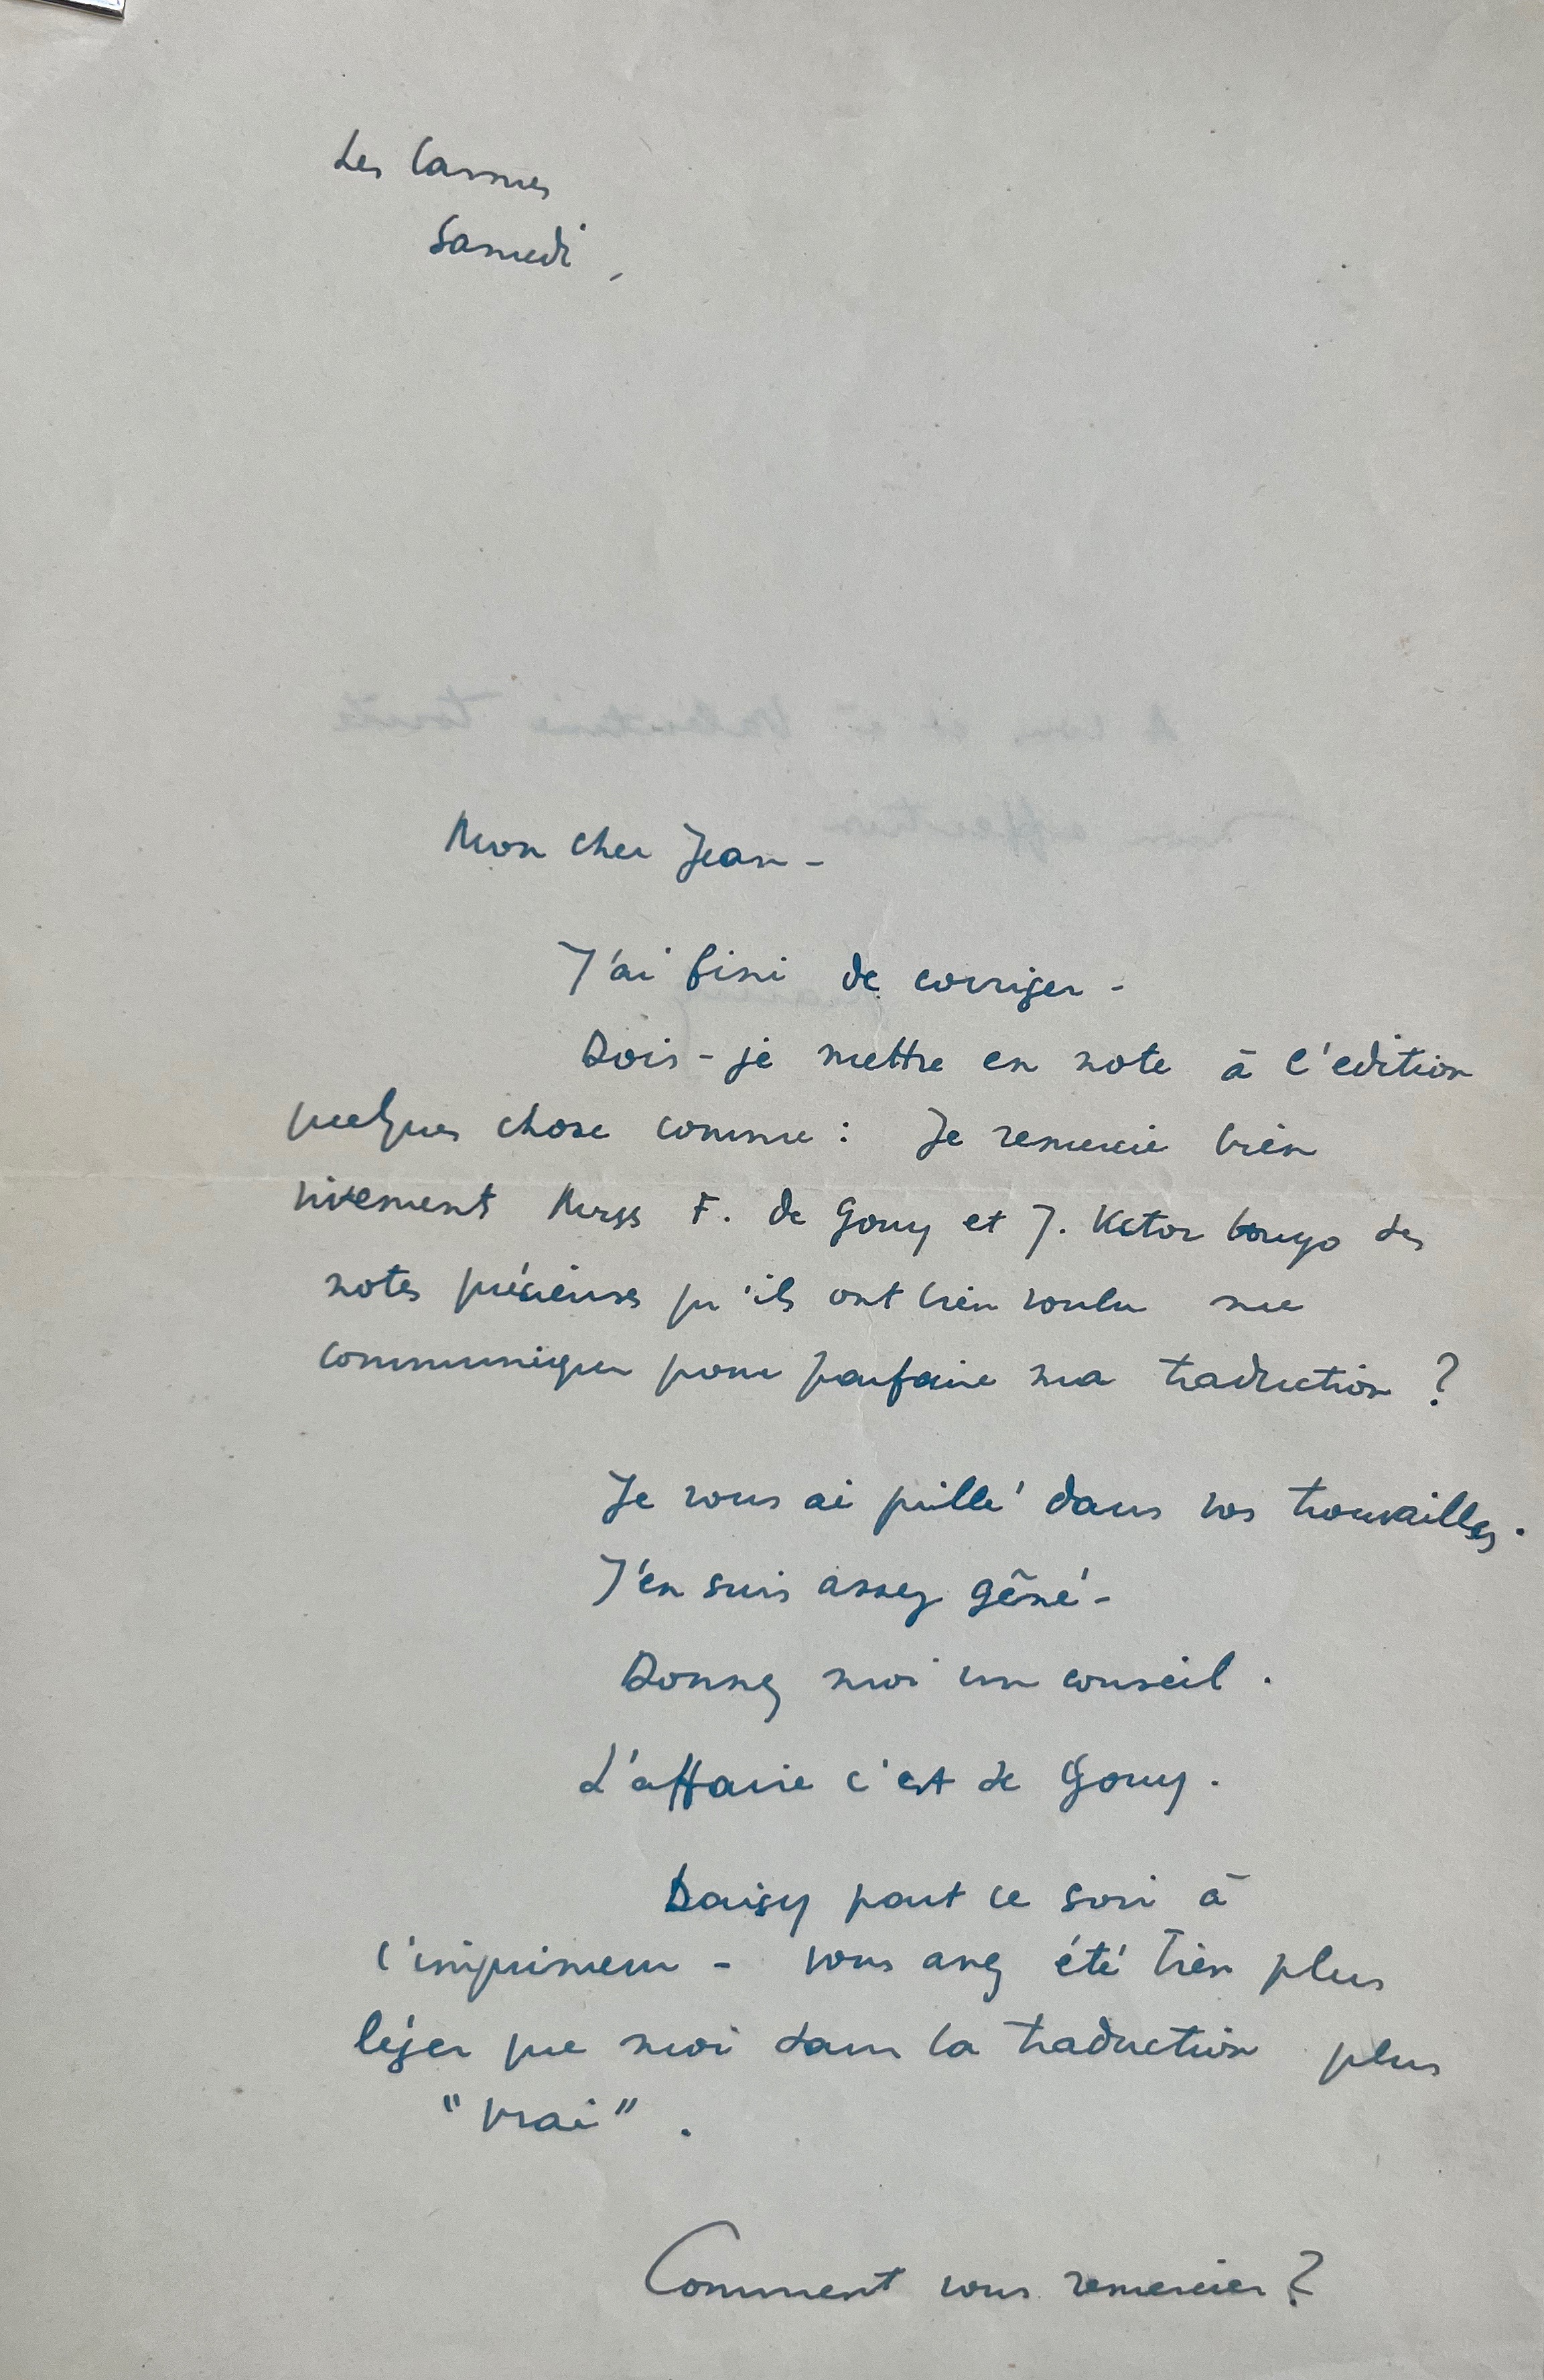 Les Carmes
Samedi,
Mon cher Jean -
J'ai fini de corriger -
Dois-je mettre en note à l'edition
quelques chose comme : Je remercie bien
vivement F. de Gouy et J. Victor Hugo des
notes précieuses qu'ils ont bien voulu me
communiquer pour parfaire ma traduction ?
Je vous ai pillé dans vos trouvailles.
J'en suis assez gêné -
Donnez moi un conseil.
L'affaire c'est de Gouy.
Daisy part ce soir à
l'imprimeur - vous avez été bien plus
léger que moi dans la traduction plus
"vrai".
Comment vous remercier ?